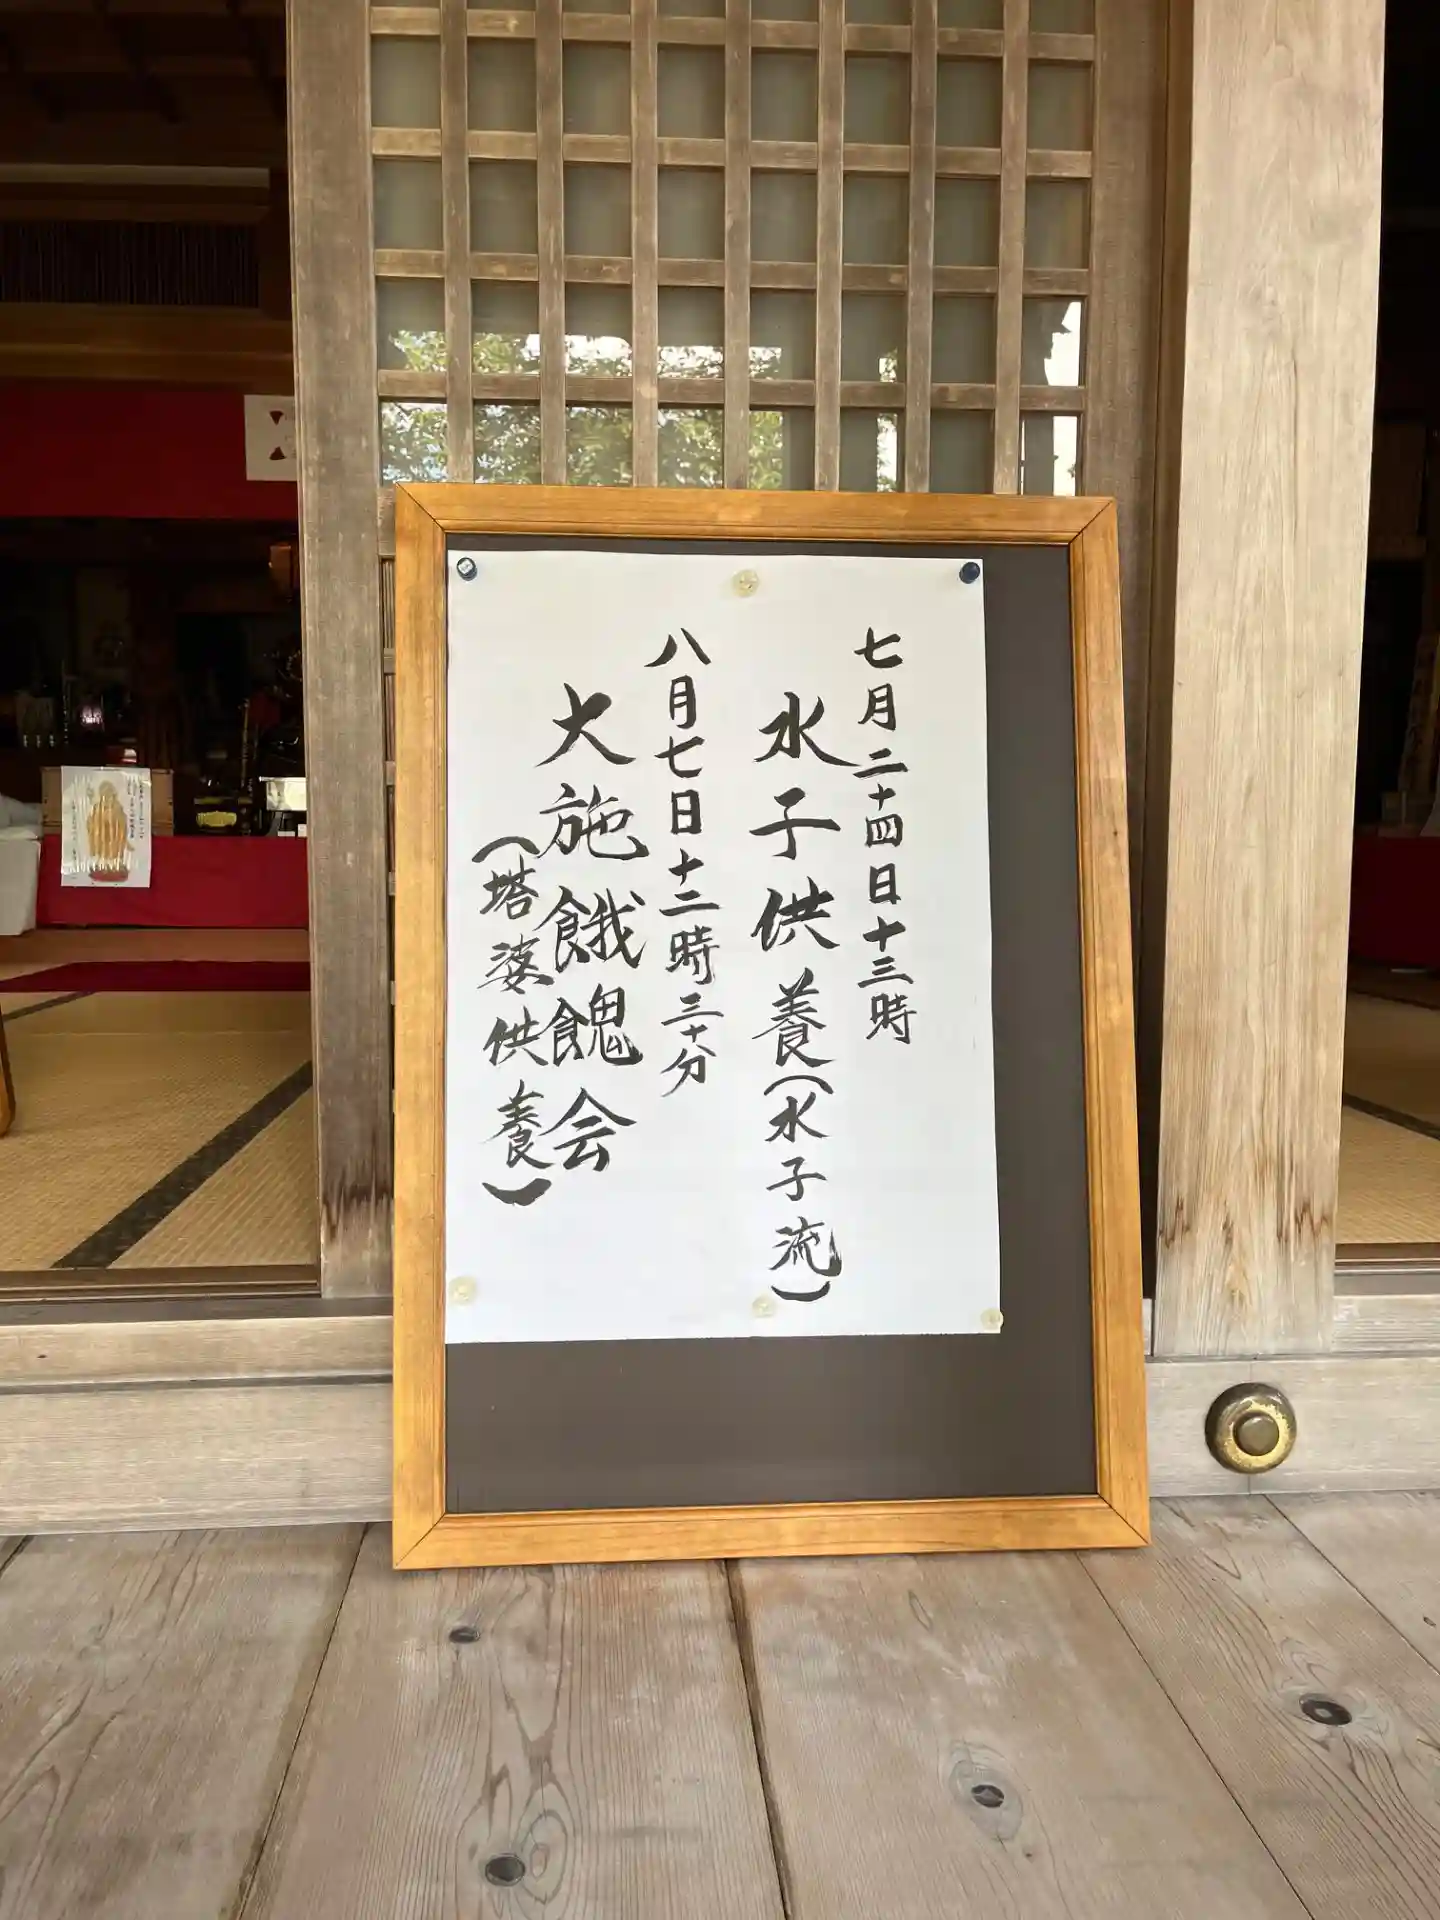 七月二十四日十三時
水子供養(水子流)
八月七日十二時三十分
大施餓餽会
(塔婆供養)